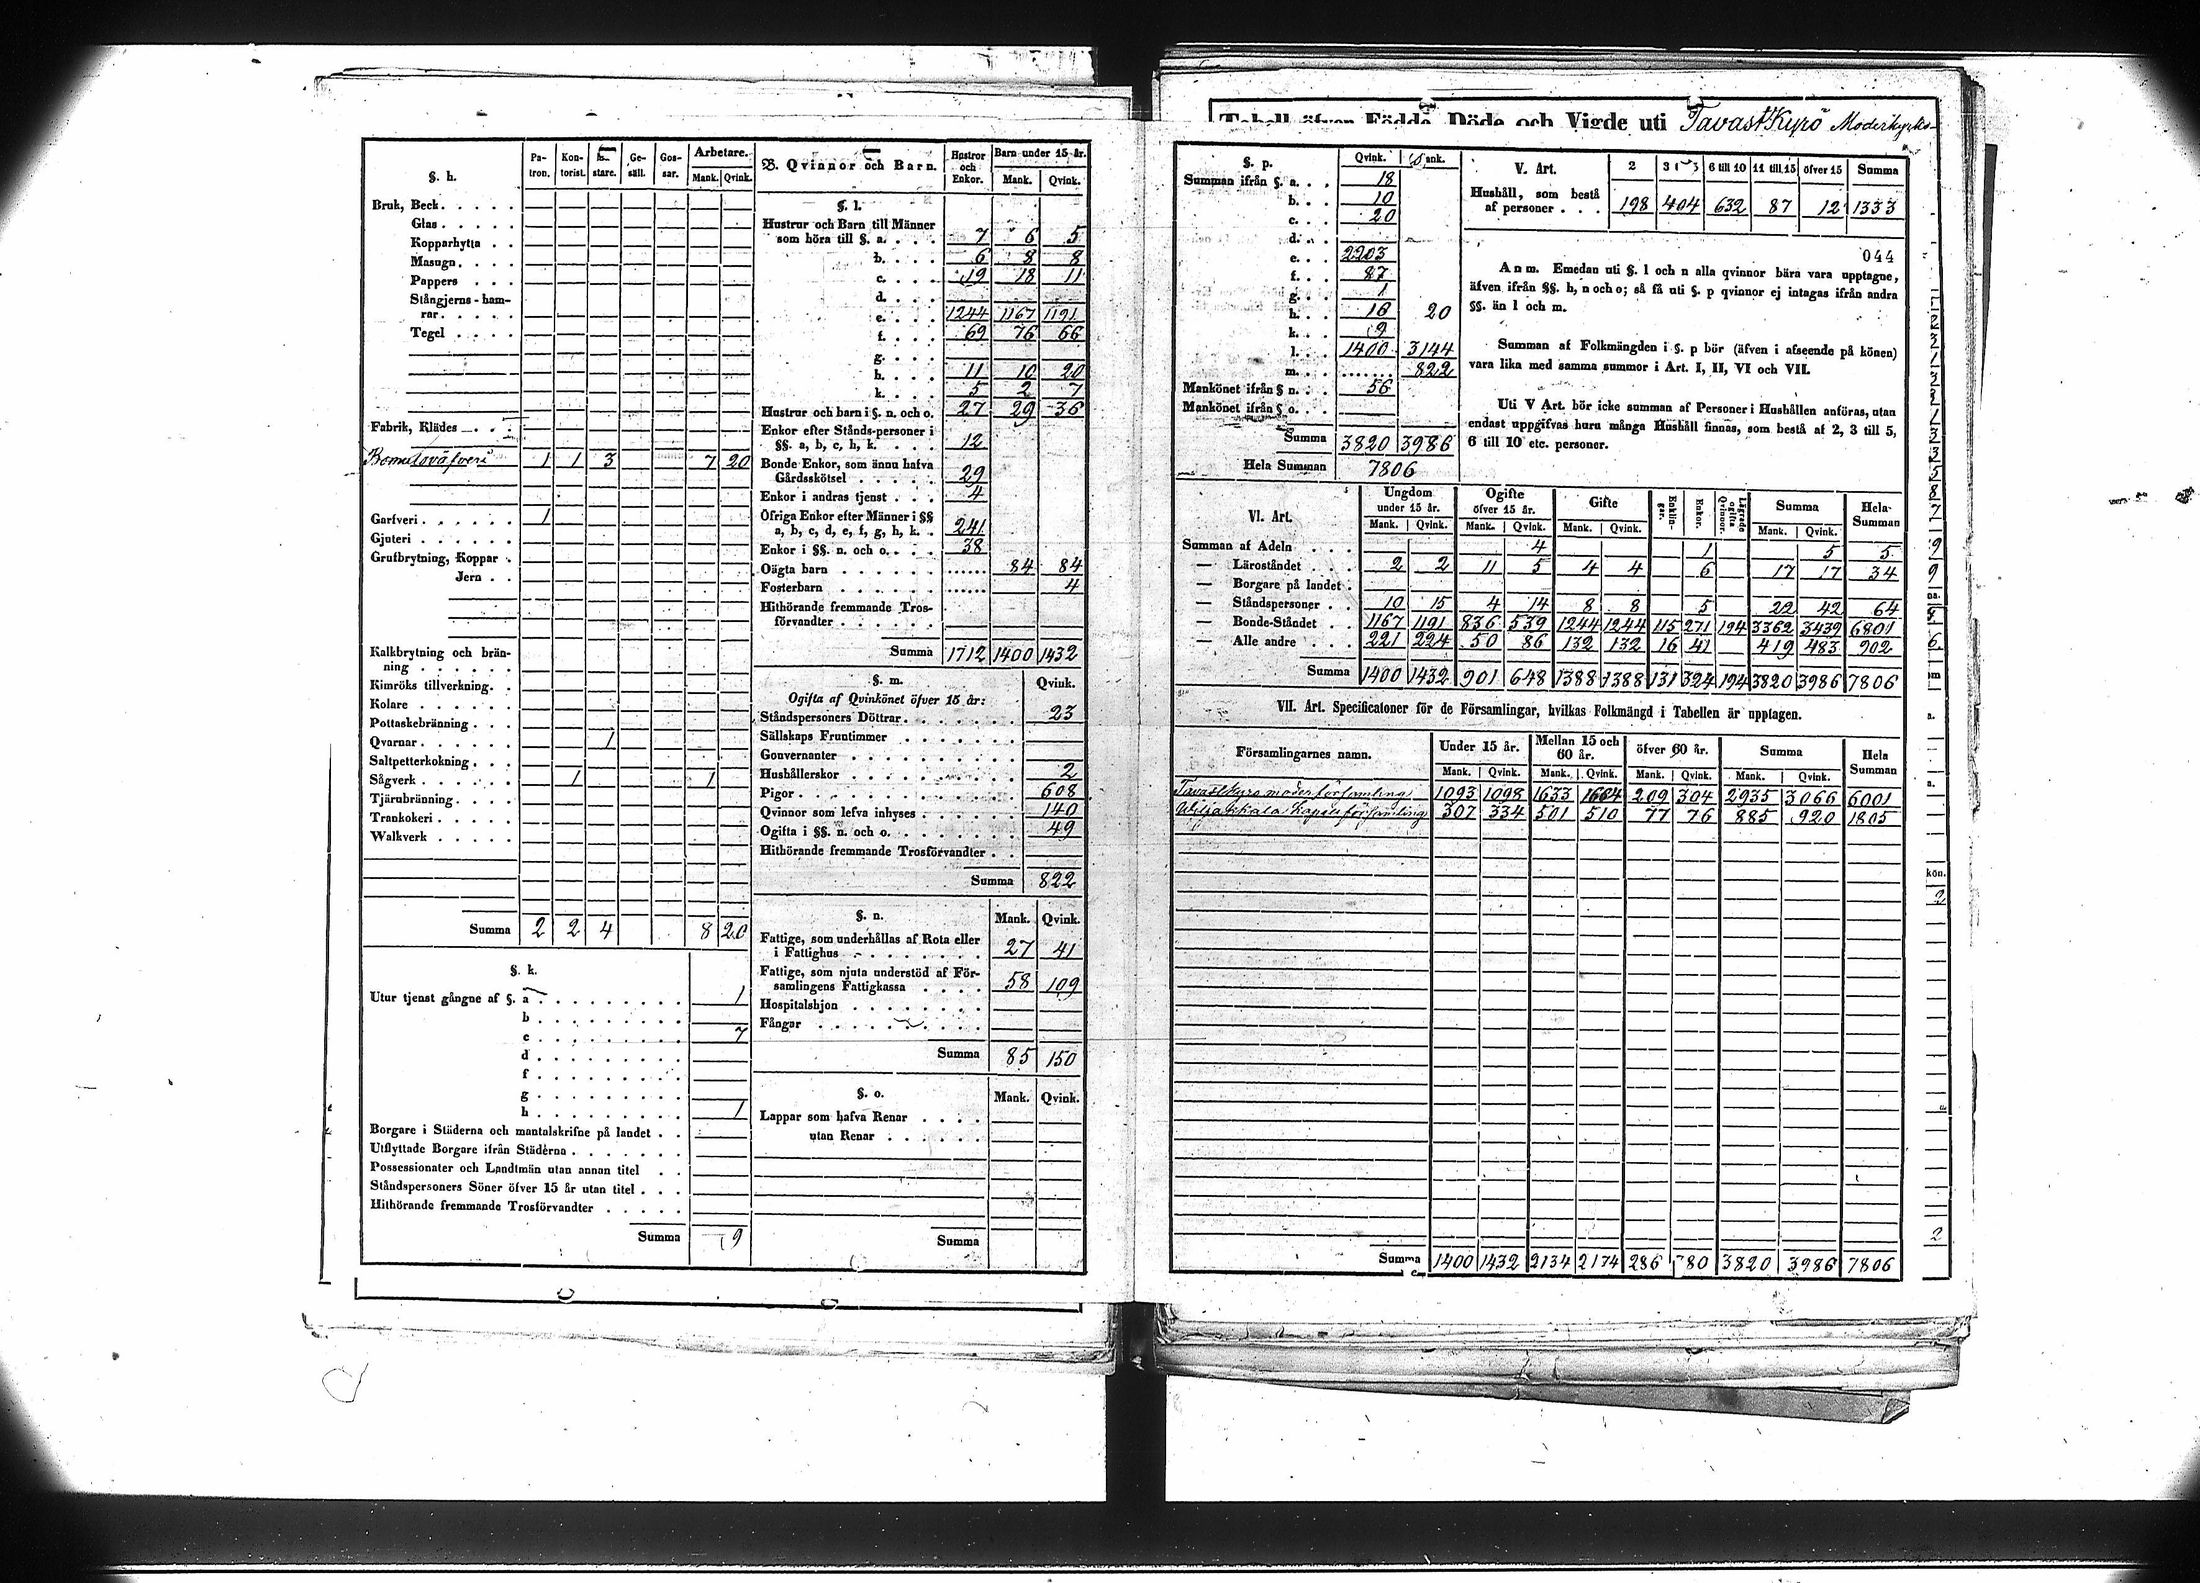 §. h. Pa- tron. Kon- torist. stare. Ge- säll. Gos- sar. Arbetare. Mank. Qvink.
Bruk, Beck
Glas
Kopparhytta
Masugn
Pappers
Stångjerns-ham-
rar
Tegel
Fabrik, Klädes
Bomulsväfveri 1 1 3 7 20
Garfveri 1
Gjuteri
Grufbrytning, Koppar
Jern
Kalkbrytning och brän-
ning
Kimröks tillverkning.
Kolare
Pottaskebränning
Qvarnar 1
Saltpetterkokning
Sågverk 1 1
Tjärubränning
Trankokeri
Walkverk
Summa 2 2 4 8 20
§. k.
Utur tjenst gångne af §. a 1
b
c 7
d
f
g
h 1
Borgare i Städerna och mantalskrifne på landet
Utflyttade Borgare ifrån Städerna
Possessionater och Landtmän utan annan titel
Ståndspersoners Söner öfver 15 år utan titel
Hithörande fremmande Trosförvandter
Summa 9
B. Qvinnor och Barn. Hustror och Enkor. Barn under 15 år. Mank. Qvink.
§. l.
Hustrur och Barn till Männer
som höra till §. a. 7 6 5
b. 6 8 8
c. 19 18 11
d.
e. 1244 1167 1191
f. 69 76 66
g.
h. 11 10 20
k. 5 2 7
Hustrur och barn i §. n. och o. 27 29 36
Enkor efter Stånds-personer i
§§. a, b, c, h, k. 12
Bonde Enkor, som ännu hafva
Gårdsskötsel 29
Enkor i andras tjenst 4
Öfriga Enkor efter Männer i §§
a, b, c, d, e, f, g, h, k. 241
Enkor i §§. n. och o. 38
Oägta barn 84 84
Fosterbarn 4
Hithörande fremmande Tros-
förvandter
Summa 1712 1400 1432
§. m. Qvink.
Ogifta af Qvinkönet öfver 15 år:
Ståndspersoners Döttrar 23
Sällskaps Fruntimmer
Gouvernanter
Hushållerskor 2
Pigor 608
Qvinnor som lefva inhyses 140
Ogifta i §§. n. och o. 49
Hithörande fremmande Trosförvandter
Summa 822
§. n. Mank. Qvink.
Fattige, som underhållas af Rota eller
i Fattighus 27 41
Fattige, som njuta understöd af För-
samlingens Fattigkassa 58 109
Hospitalshjon
Fångar
Summa 85 150
§. o. Mank. Qvink.
Lappar som hafva Renar
utan Renar
Summa
Tabell öfver Födde, Döde och Vigde uti TavastKyrö Moderkyrko-
§. p. Qvink. Mank.
Summan ifrån §. a. 18
b. 10
c. 20
d.
e. 2203
f. 87
g. 1
h. 16 20
k. 9
l. 1400 3144
m. 822
Mankönet ifrån § n. 56
Mankönet ifrån § o.
Summa 3820 3986
Hela Summan 7806
V. Art. 2 6 till 10 11 till 15 öfver 15 Summa
Hushåll, som bestå
af personer 198 404 632 87 12 1333
044
Anm. Emedan uti §. l och n alla qvinnor böra vara upptagne,
äfven ifrån §§. h, n och o; så få uti §. p qvinnor ej intagas ifrån andra
§§. än l och m.
Summan af Folkmängden i §. p bör (äfven i afseende på könen)
vara lika med samma summor i Art. I, II, VI och VII.
Uti V Art. bör icke summan af Personer i Hushållen anföras, utan
endast uppgifvas huru många Hushåll finnas, som bestå af 2, 3 till 5,
6 till 10 etc. personer.
VI. Art. Ungdom under 15 år. Ogifte öfver 15 år. Gifte Enklin- gar. Enkor. Lägrade ogifte Qvinnor. Summa Hela- Summan
Mank. Qvink. Mank. Qvink. Mank. Qvink. Mank. Qvink.
Summan af Adeln 4 1 5 5
— Läroståndet 2 2 11 5 4 4 6 17 17 34
— Borgare på landet
— Ståndspersoner 10 15 4 14 8 8 5 22 42 64
— Bonde-Ståndet 1167 1191 836 539 1244 1244 115 271 194 3362 3439 6801
— Alle andre 221 224 50 86 132 132 16 41 419 483 902
Summa 1400 1432 901 648 1388 1388 131 324 194 3820 3986 7806
VII. Art. Specificatoner för de Församlingar, hvilkas Folkmängd i Tabellen är upptagen.
Församlingarnes namn. Under 15 år. Mellan 15 och 60 år. öfver 60 år. Summa Hela Summan
Mank. Qvink. Mank. Qvink. Mank. Qvink. Mank. Qvink.
Tavastkyro moderförsamling 1093 1098 1633 1664 209 304 2935 3066 6001
Wiljakkala kapellförsamling 307 334 501 510 77 76 885 920 1805
Summa 1400 1432 2134 2174 286 380 3820 3986 7806